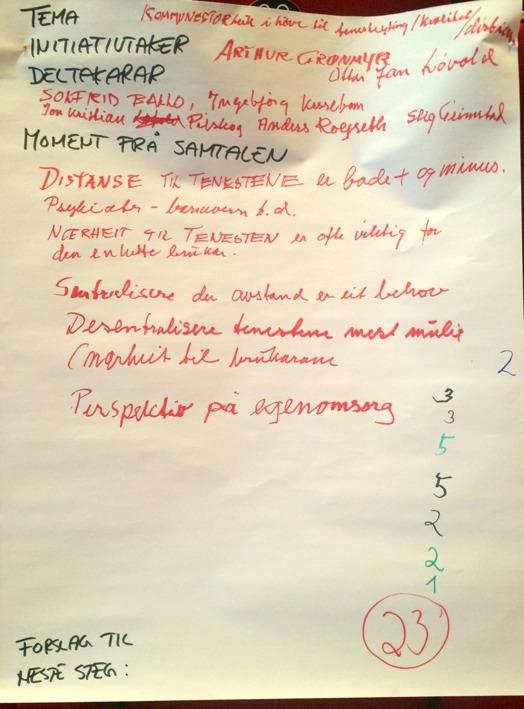 TEMA KOMMUNESTORLEIK i høve til tenesteyting / kvalitet / distrikt
INITIATIVTAKER ARTHUR GRØNMYR
DELTAKARAR Jan Løvold
SOLFRID BALLO, Ingebjørg Kussebom
Jon Kristian Pilskog Anders Roefseth Stig
MOMENT FRÅ SAMTALEN
DISTANSE TIL TENESTENE er både + og minus.
Psykiater - barnevern b.d.
NÆRHEIT TIL TENESTEN er ofte viktig for
den enkelte brukar.
Sentralisere der avstand er eit behov
Desentralisere tenestene mest mulig
(nærheit til brukarane
2
Perspektiv på egenomsorg
3
3
5
5
2
2
1
23
FORSLAG TIL
NESTE STEG: